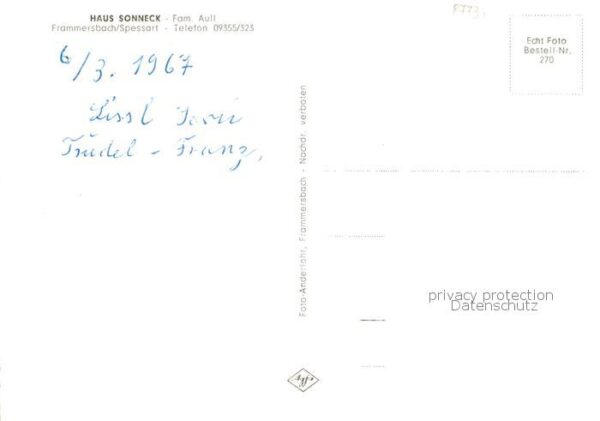 HAUS SONNECK - Fam. Aull
Frammersbach/Spessart - Telefon 09355/323
6/3. 1967
Lissl
Trudel - Franz,
Foto-Anderlohr, Frammersbach - Nachdr. verboten
Echt Foto
Bestell-Nr.
270
privacy protection
Datenschutz